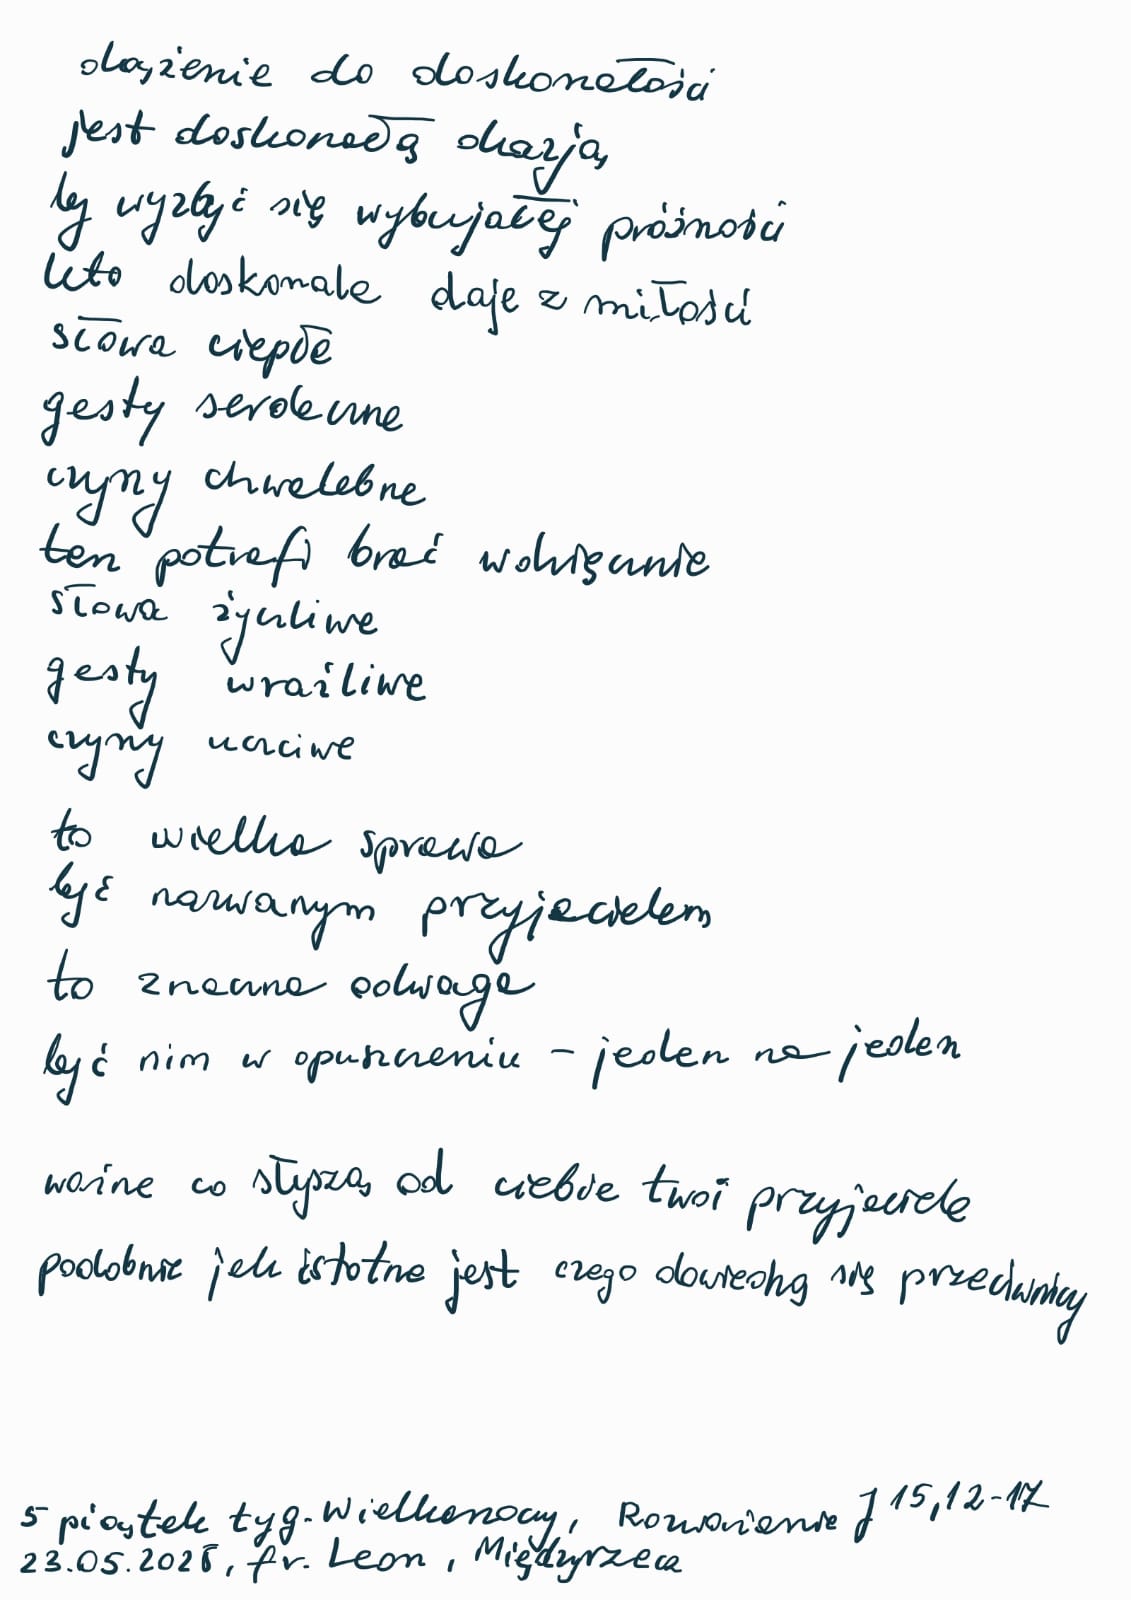 dążenie do doskonałości
jest doskonałą okazją
by wyzbyć się wybujałej próżności
kto doskonale daje z miłości
słowa ciepłe
gesty serdeczne
czyny chwalebne
ten potrafi brać wdzięcznie
słowa życzliwe
gesty wrażliwe
czyny uczciwe
to wielka sprawa
być nazwanym przyjacielem
to znaczna odwaga
być nim w opuszczeniu – jeden na jeden
ważne co słyszą od ciebie twoi przyjaciele
podobnie jak istotne jest czego dowiedzą się przeciwnicy
5 piątek tyg. Wielkanocny, Rozważenie J 15,12-17
23.05.2025, fr. Leon, Międzyrzecz